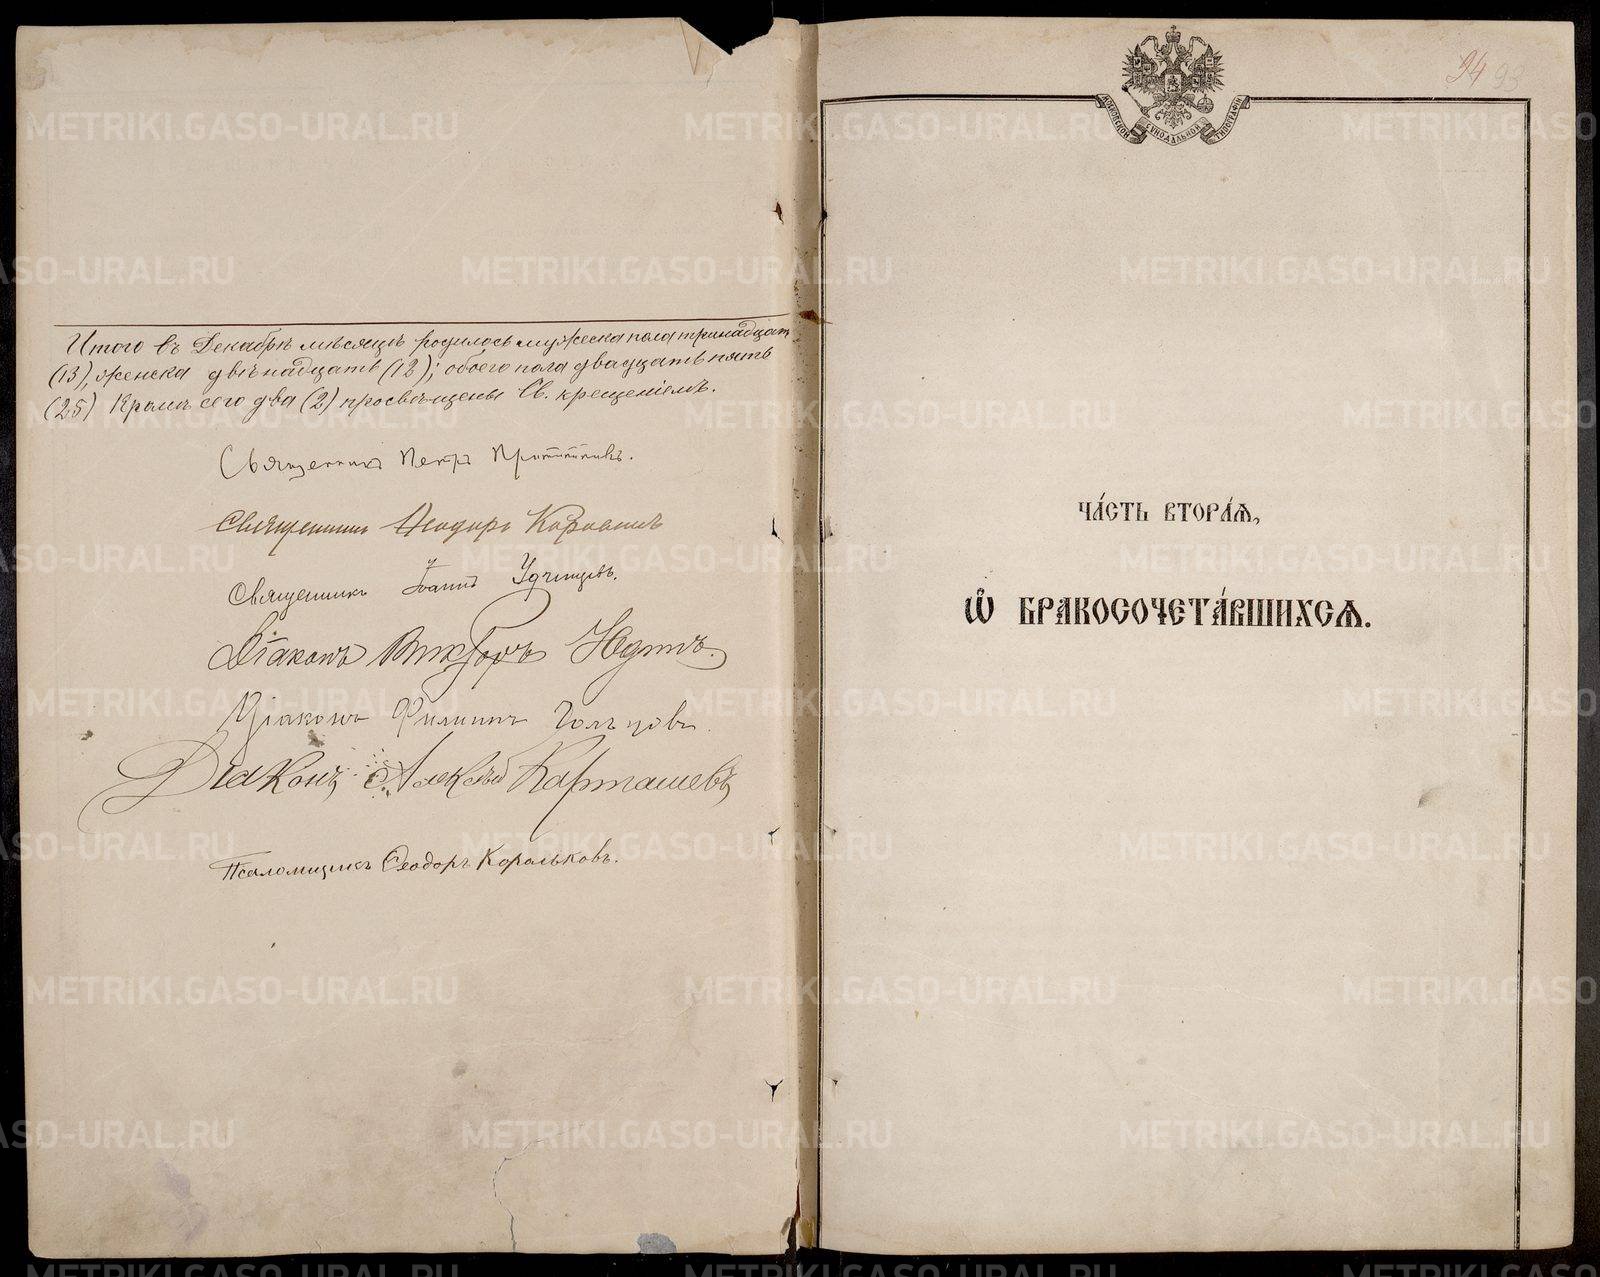 Итого въ Декабрѣ мѣсяцѣ родилось мужеска пола тринадцать
(13), женска двѣнадцать (12); обоего пола двадцать пять
(25) Кромѣ сего два (2) просвѣщены Св. крещеніемъ.
Священникъ Петръ
Священникъ Ѳеодоръ
Священникъ Іоаннъ Удинцевъ.
Діаконъ Викторъ Юдинъ.
Діаконъ Филиппъ Гольцовъ.
Діаконъ Алексѣй Карташевъ
Псаломщикъ Ѳеодоръ Корольковъ.
МОСКОВСКОЙ СѴНОДАЛЬНОЙ ТИПОГРАФІИ
94 93
ЧА́СТЬ ВТОРА́Ѧ,
Ѽ БРАКОСОЧЕТА́ВШИХСѦ.
METRIKI.GASO-URAL.RU